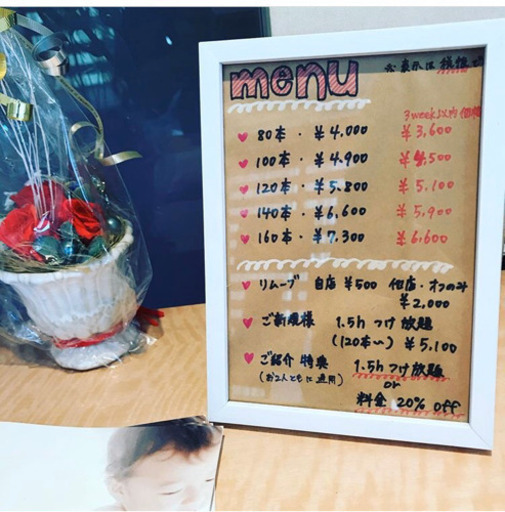 menu
3week以内価格
80本・¥4,000 ¥3,600
100本・¥4,900 ¥4,500
120本・¥5,800 ¥5,100
140本・¥6,600 ¥5,900
160本・¥7,300 ¥6,600
リムーブ 自店 ¥500 他店・オフのみ
¥2,000
ご新規様 1.5hつけ放題
(120本〜) ¥5,100
ご紹介特典 1.5hつけ放題
(お2人ともに適用) or
料金 20% off